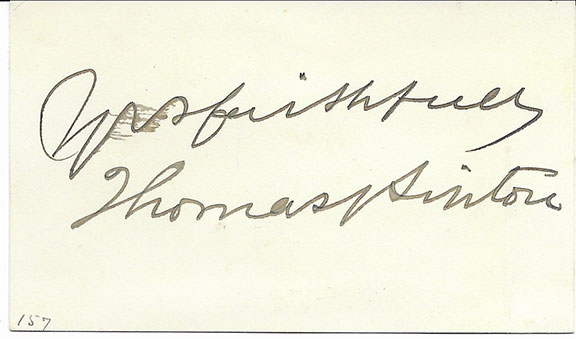 Yrs faithfully
Thomas Hinton
157